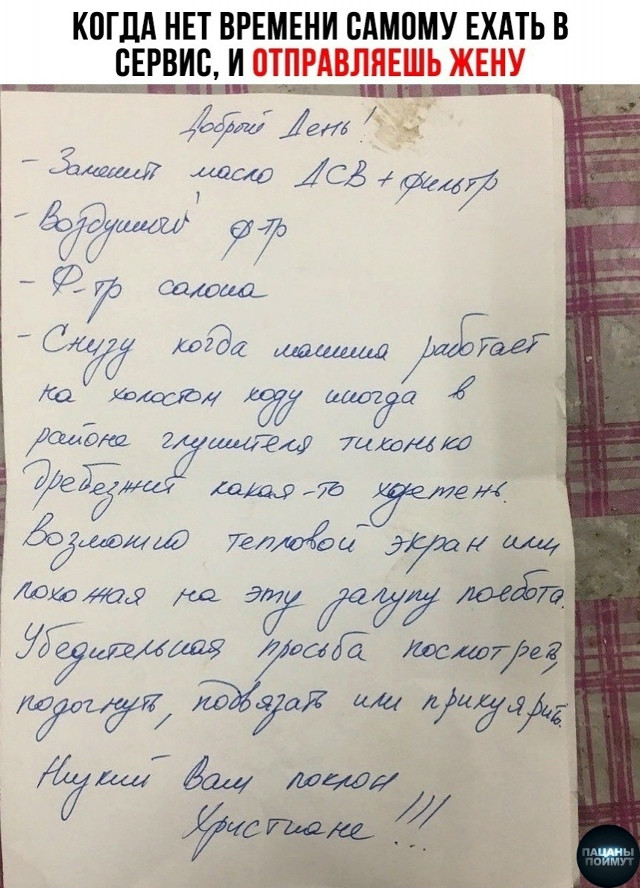 КОГДА НЕТ ВРЕМЕНИ САМОМУ ЕХАТЬ В
СЕРВИС, И ОТПРАВЛЯЕШЬ ЖЕНУ
Добрый День!
- Заменить масло ДСВ + фильтр
- Воздушный ф-тр
- Ф-тр салона
- Снизу когда машина работает
на холостом ходу иногда в
районе глушителя тихонько
дребезжит какая-то хуетень.
Возможно тепловой экран или
похожая на эту залупу поебота.
Убедительная просьба посмотреть,
подогнуть, подвязать или прикуярить.
Низкий Вам поклон
Христиане!!!
ПАЦАНЫ
ПОЙМУТ